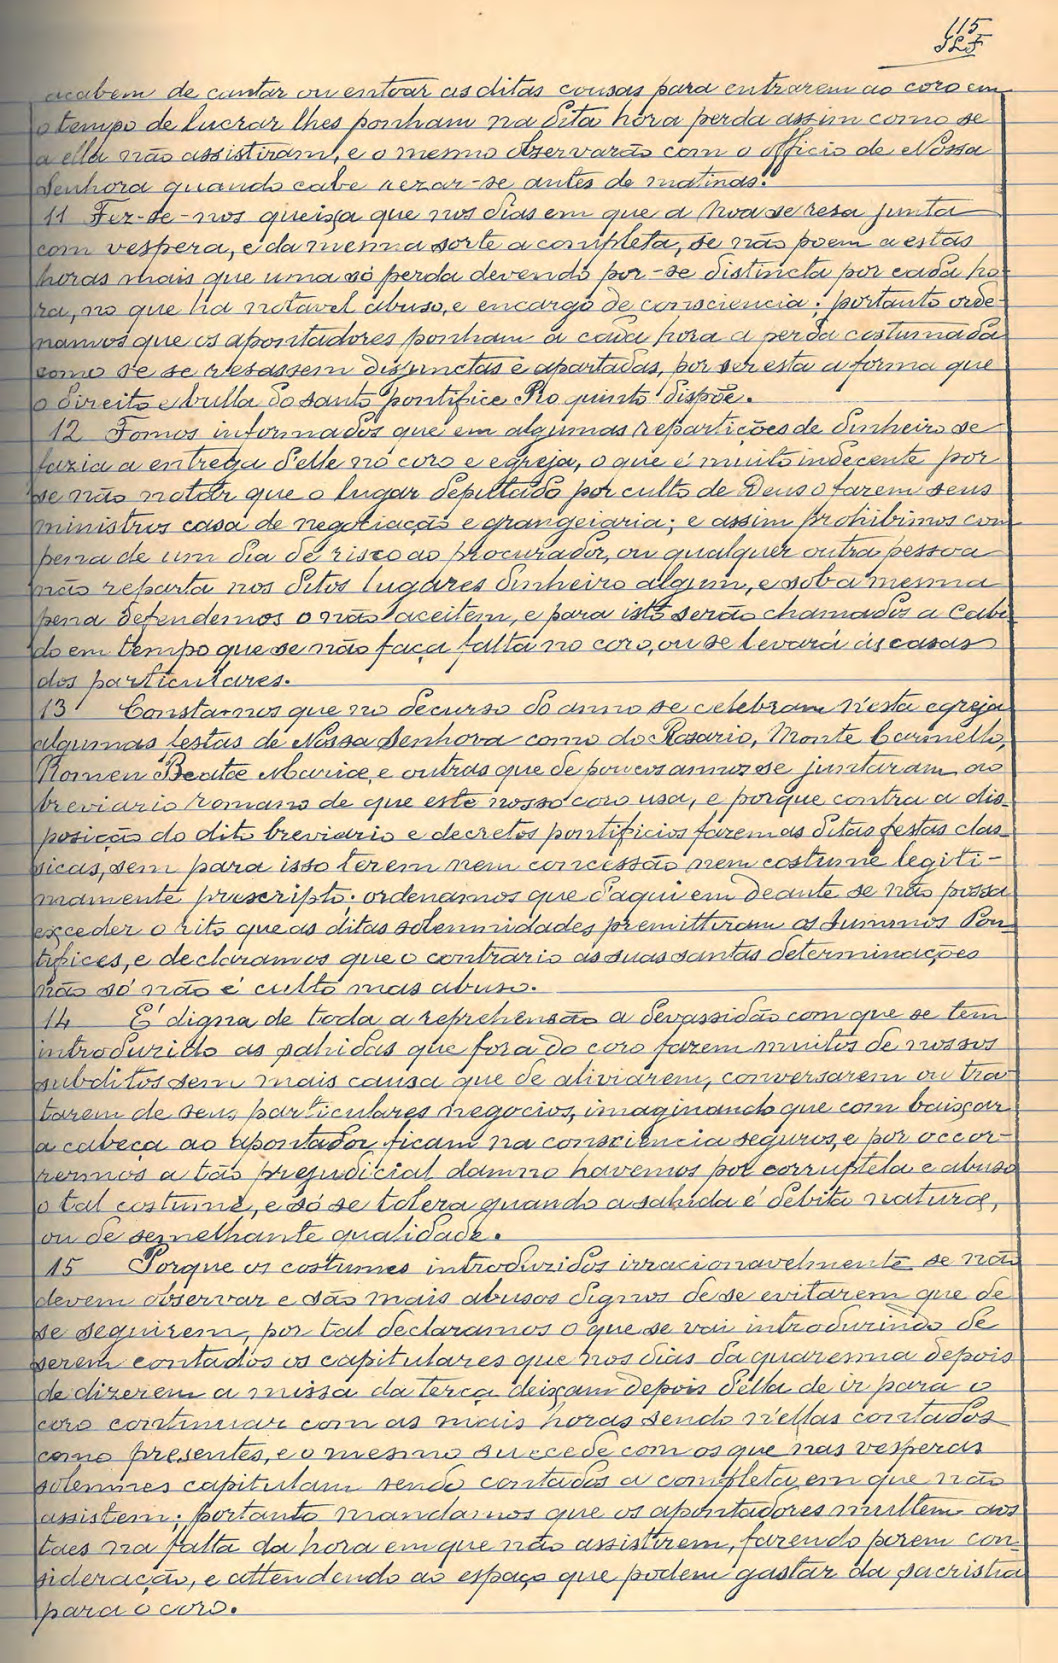 115
JLF
acabem de cantar ou entoar as ditas cousas para entrarem ao coro em
o tempo de lucrar lhes ponham na dita hora perda assim como se
a ella não assistiram, e o mesmo observarão com o officio de Nossa
Senhora quando cabe rezar-se antes de matinas.
11 Fez-se-nos queixa que nos dias em que a Noa se resa junta
com vespera, e da mesma sorte a completa, se não poem a estas
horas mais que uma só perda devendo por-se distincta por cada ho-
ra, no que ha notavel abuso, e encargo de consciencia; portanto orde-
namos que os apontadores ponham a cada hora a perda costumada
como se se resassem disjunctas e apartadas, por ser esta a forma que
o direito e bulla do santo pontifice Pio quinto dispõe.
12 Fomos informados que em algumas repartições de dinheiro se
fazia a entrega delle no coro e egreja, o que é muito indecente por
se não notar que o lugar deputado por culto de Deus o fazem seus
ministros casa de negociação e grangeiaria; e assim prohibimos com
pena de um dia de risco ao procurador, ou qualquer outra pessoa
não reparta nos ditos lugares dinheiro algum, e sob a mesma
pena defendemos o não aceitem, e para isto serão chamados a Cabi-
do em tempo que se não faça falta no coro, ou se levará ás casas
dos particulares.
13 Consta-nos que no decurso do anno se celebram n'esta egreja
algumas festas de Nossa Senhora como do Rosario, Monte Carmello,
Nomen Beatae Mariae, e outras que de poucos annos se juntaram ao
breviario romano de que este nosso coro usa, e porque contra a dis-
posição do dito breviario e decretos pontificios fazem as ditas festas clas-
sicas, sem para isso terem nem concessão nem costume legiti-
mamente prescripto; ordenamos que d'aqui em deante se não possa
exceder o rito que as ditas solemnidades premittiram os Summos Pon-
tifices, e declaramos que o contrario as suas santas determinações
não só não é culto mas abuso.
14 É digna de toda a reprehensão a devassidão com que se tem
introduzido as sahidas que fora do coro fazem muitos de nossos
subditos sem mais causa que de aliviarem, conversarem ou tra-
tarem de seus particulares negocios, imaginando que com baixar
a cabeça ao apontador ficam na consciencia seguros, e por occor-
rermos a tão prejudicial damno havemos por corruptela e abuso
o tal costume, e só se tolera quando a sahida é debita naturae,
ou de semelhante qualidade.
15 Porque os costumes introduzidos irracionavelmente se não
devem observar e são mais abusos dignos de se evitarem que de
se seguirem, por tal declaramos o que se vai introduzindo de
serem contados os capitulares que nos dias da quaresma depois
de dizerem a missa da terça deixam depois della de ir para o
coro continuar com as mais horas sendo n'ellas contados
como presentes, e o mesmo succede com os que nas vesperas
solemnes capitulam sendo contados a completa em que não
assistem; portanto mandamos que os apontadores multem aos
taes na falta da hora em que não assistirem, fazendo porem con-
sideração, e attendendo ao espaço que podem gastar da sacristia
para o coro.